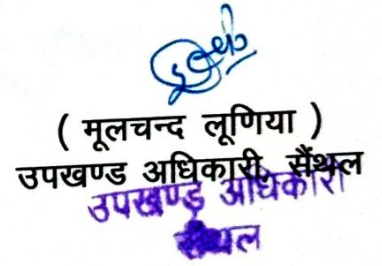 ( मूलचन्द लूणिया )
उपखण्ड अधिकारी, सैंथल
उपखण्ड अधिकारी
सैंथल